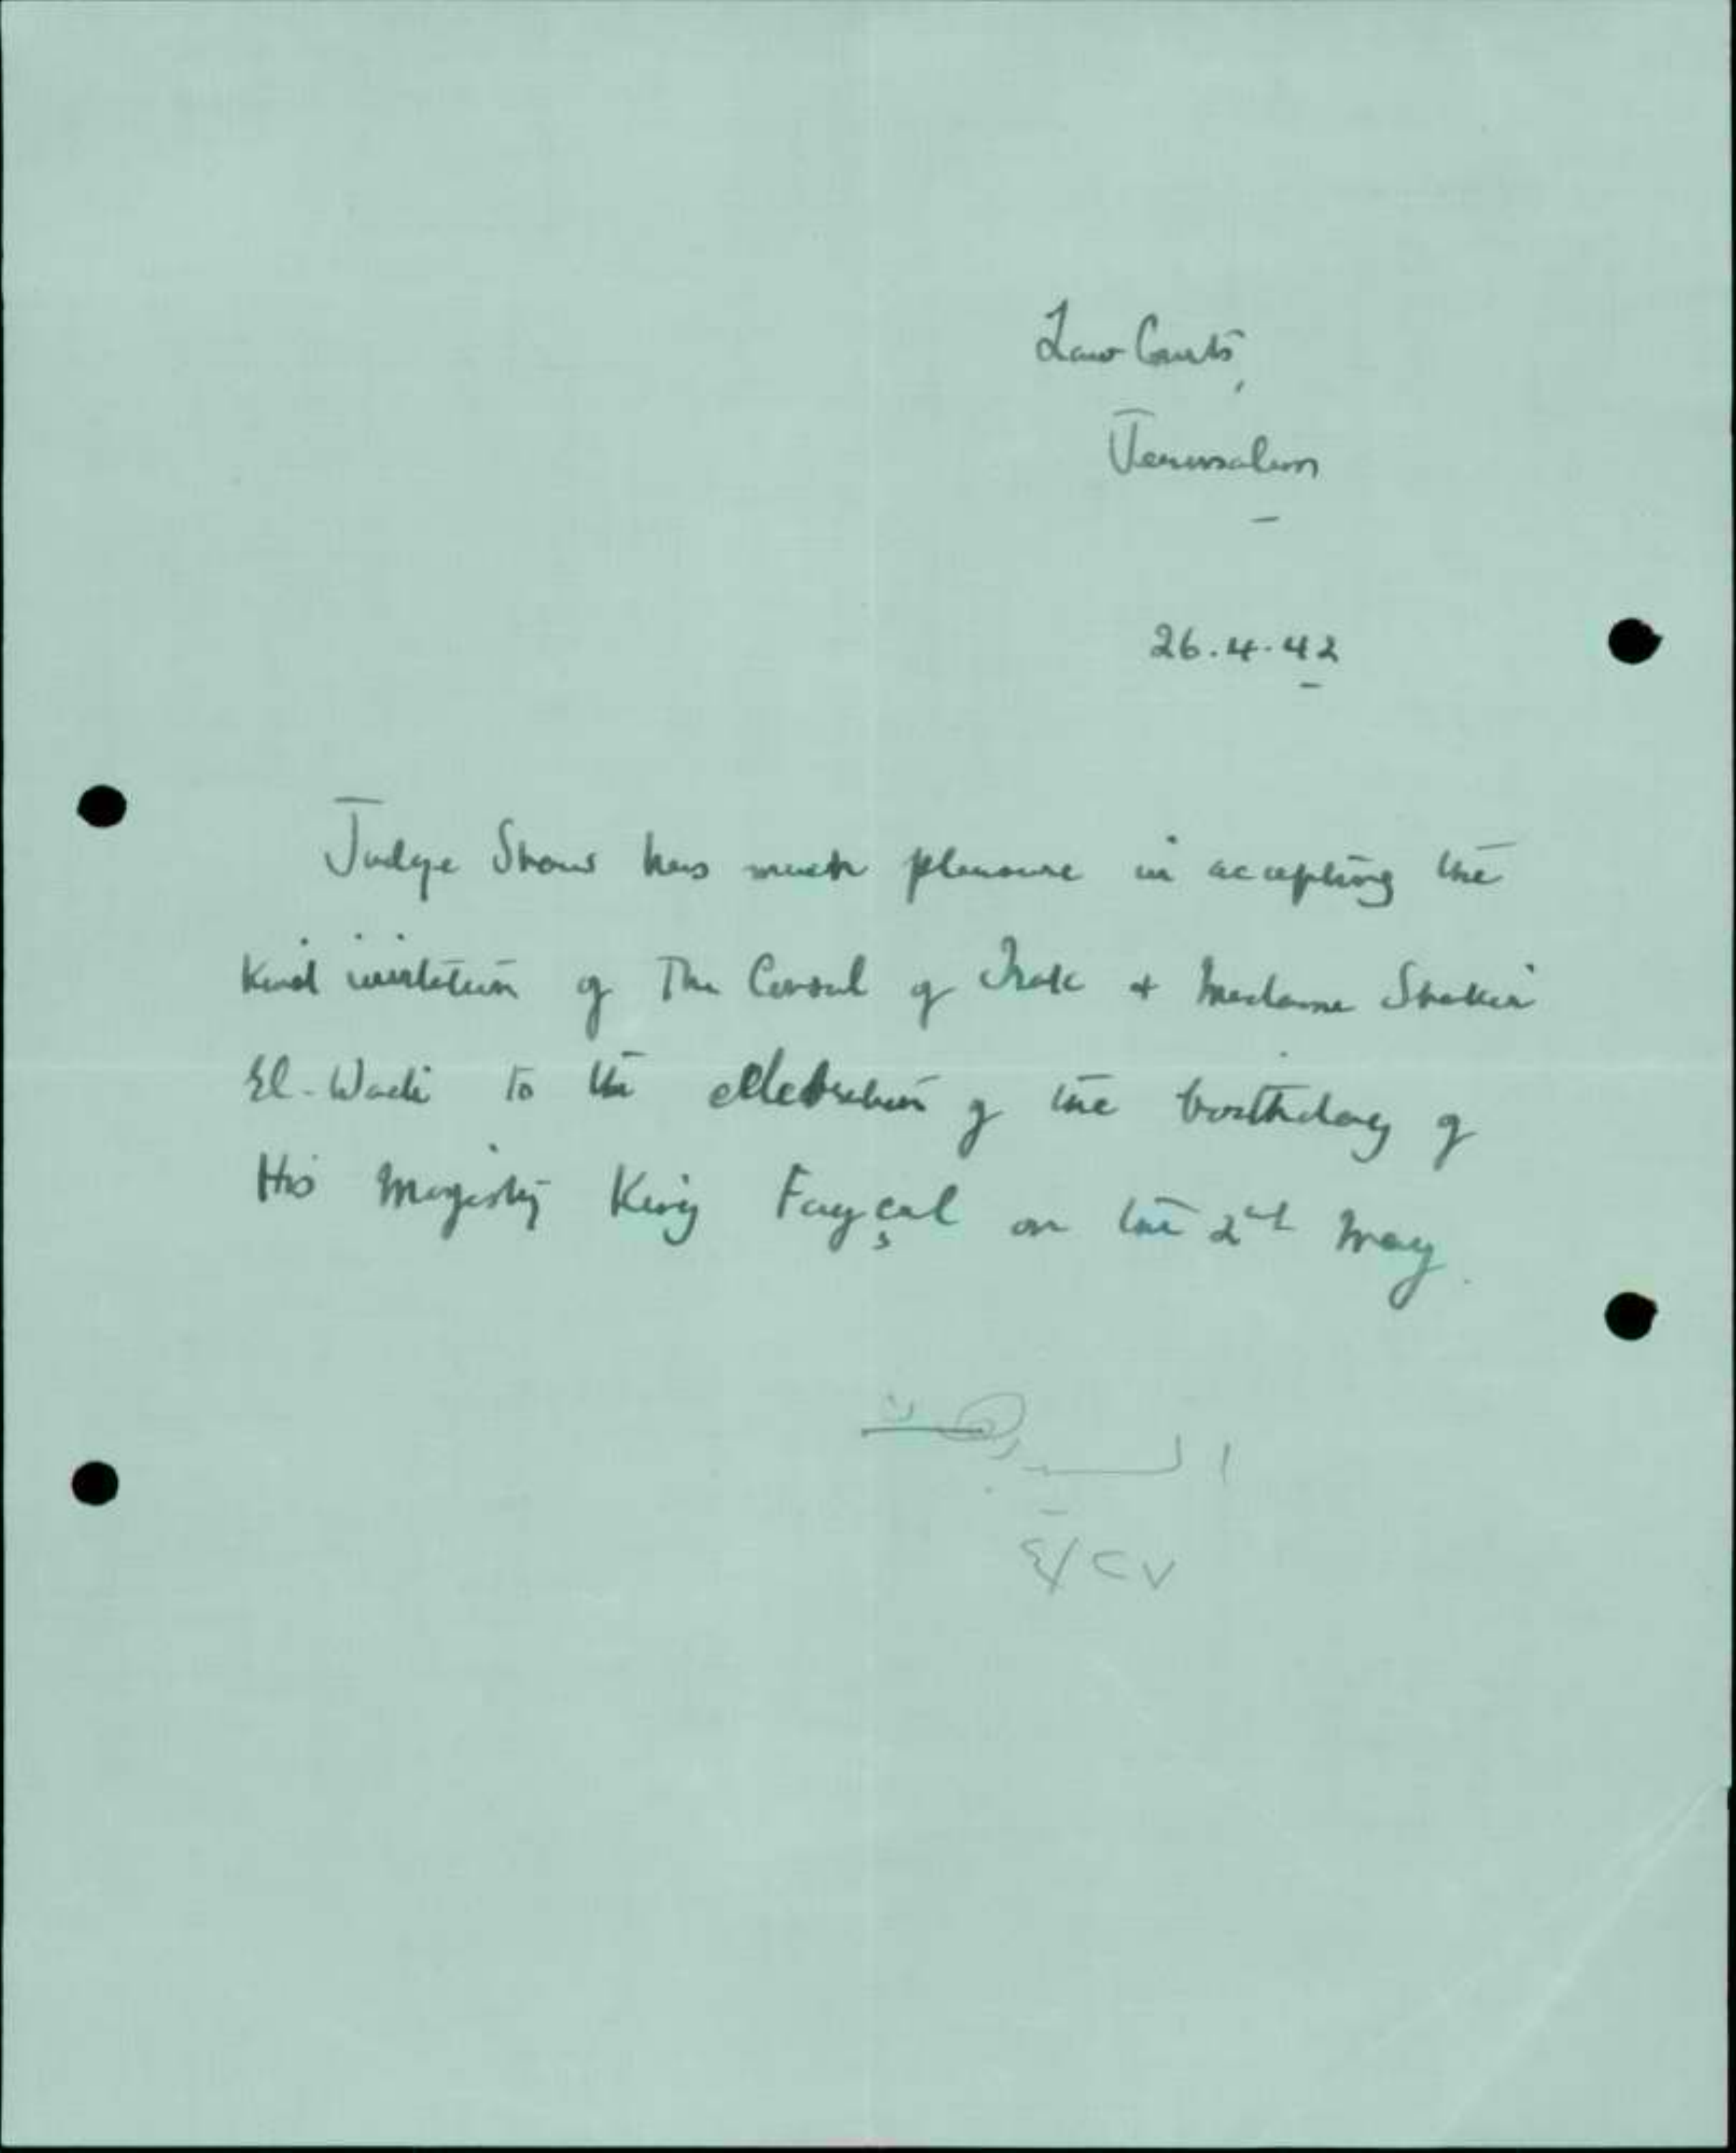 Law Courts,
Jerusalem
26.4.42
Judge Shaw has much pleasure in accepting the
kind invitation of The Consul of Irak & Madame Shakir
El-Wadi to the celebration of the birthday of
His Majesty King Fayçal on the 2nd May.
٤/٢٧